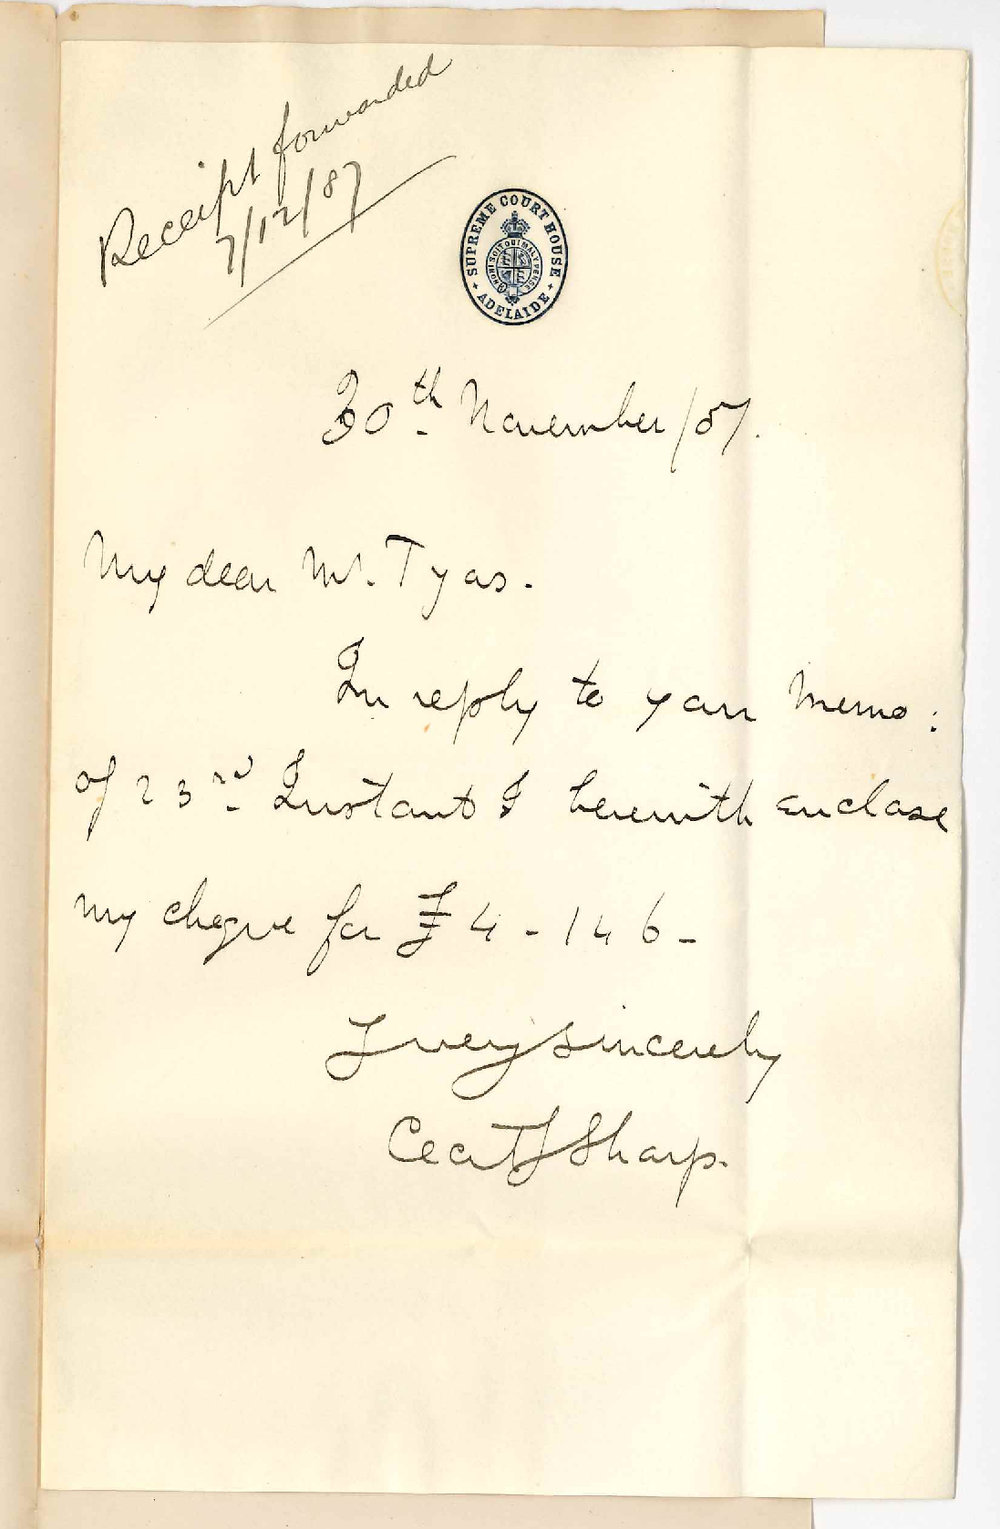 Receipt forwarded
7/12/87
SUPREME COURT HOUSE
ADELAIDE
HONI SOIT QUI MAL Y PENSE
30th November /87.
My dear Mr. Tyas.
In reply to your Memo:
of 23rd Instant I herewith enclose
my cheque for £4-14 6-
Y very sincerely
Cecil J Sharp.